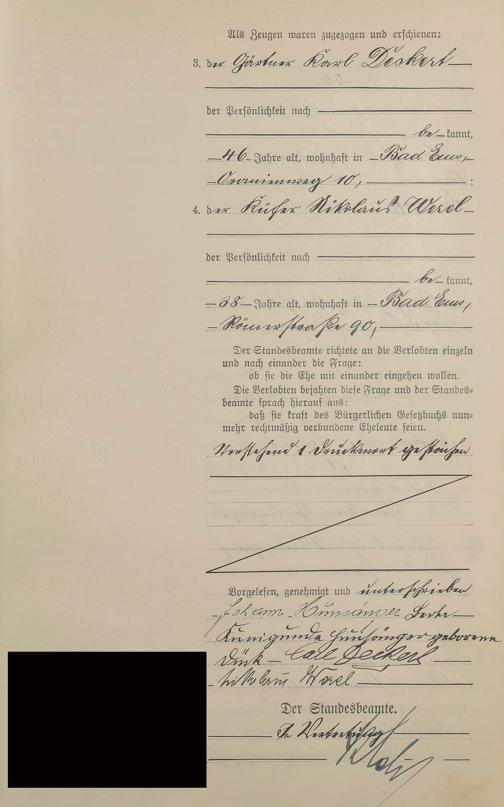 Als Zeugen waren zugezogen und erschienen:
3. der Gärtner Karl Deckert
der Persönlichkeit nach
be kannt,
46 Jahre alt, wohnhaft in Bad Ems,
Oranienweg 10, ;
4. der Küfer Nikolaus
der Persönlichkeit nach
be kannt,
38 Jahre alt, wohnhaft in Bad Ems,
Römerstraße 90,
Der Standesbeamte richtete an die Verlobten einzeln
und nach einander die Frage:
ob sie die Ehe mit einander eingehen wollen.
Die Verlobten bejahten diese Frage und der Standes-
beamte sprach hierauf aus:
daß sie kraft des Bürgerlichen Gesetzbuchs nun-
mehr rechtmäßig verbundene Eheleute seien.
Vorstehend 1 Druckwort gestrichen
Vorgelesen, genehmigt und unterschrieben
Johann
Kunigunde geborene
Carl Deckert
Nikolaus
Der Standesbeamte.
In Vertretung